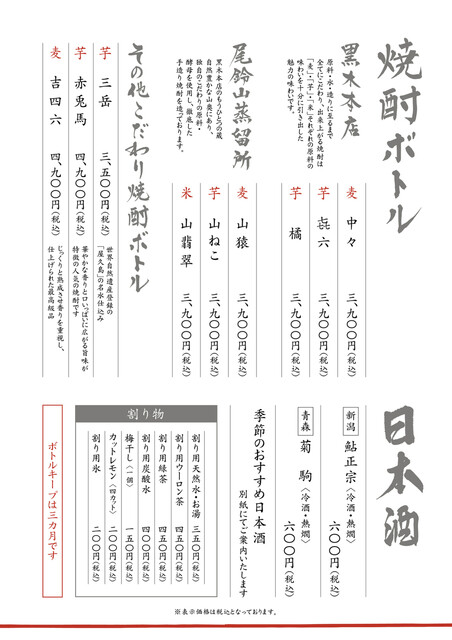 焼酎ボトル
黒木本店
原料・水・造りに至るまで
全てにこだわり、出来上がる焼酎は
「麦」・「芋」・「米」それぞれの原料の
味わいを十分に引き出した
魅力の味わいです。
麦 中々 三、九〇〇円(税込)
芋 㐂六 三、九〇〇円(税込)
芋 橘 三、九〇〇円(税込)
尾鈴山蒸留所
黒木本店のもうひとつの蔵。
自然豊かな山奥にあり、
独自のこだわりの原料・
酵母を使用し、徹底した
手造り焼酎を造っております。
麦 山猿 三、九〇〇円(税込)
芋 山ねこ 三、九〇〇円(税込)
米 山翡翠 三、九〇〇円(税込)
その他こだわり焼酎ボトル
芋 三岳 三、五〇〇円(税込)
世界自然遺産登録の
「屋久島」の名水仕込み
芋 赤兎馬 四、九〇〇円(税込)
華やかな香りと口いっぱいに広がる旨味が
特徴の人気の焼酎です
麦 吉四六 四、九〇〇円(税込)
じっくりと熟成させ香りを重視し、
仕上げられた最高級品
日本酒
新潟 鮎正宗〈冷酒・熱燗〉 六〇〇円(税込)
青森 菊駒〈冷酒・熱燗〉 六〇〇円(税込)
季節のおすすめ日本酒
別紙にてご案内いたします
割り物
割り用天然水・お湯 三五〇円(税込)
割り用ウーロン茶 四五〇円(税込)
割り用緑茶 四五〇円(税込)
割り用炭酸水 四〇〇円(税込)
梅干し〈一個〉 一五〇円(税込)
カットレモン〈四カット〉 二〇〇円(税込)
割り用氷 二〇〇円(税込)
ボトルキープは三カ月です
※表示価格は税込となっております。